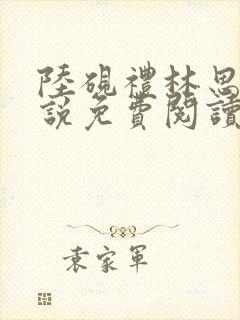 陸硯禮林思
說免費閱讀
袁家軍